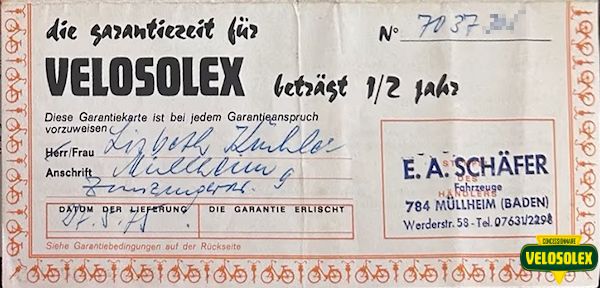 die garantiezeit für
N° 7037
VELOSOLEX beträgt 1/2 jahr
Diese Garantiekarte ist bei jedem Garantieanspruch
vorzuweisen
Herr/Frau Lisbeth
Anschrift Müllheim
9
DATUM DER LIEFERUNG DIE GARANTIE ERLISCHT
Siehe Garantiebedingungen auf der Rückseite
STEMPEL DES HÄNDLERS
E. A. SCHÄFER
Fahrzeuge
784 MÜLLHEIM (BADEN)
Werderstr. 58 - Tel. 07631/2298
CONCESSIONNAIRE
VELOSOLEX